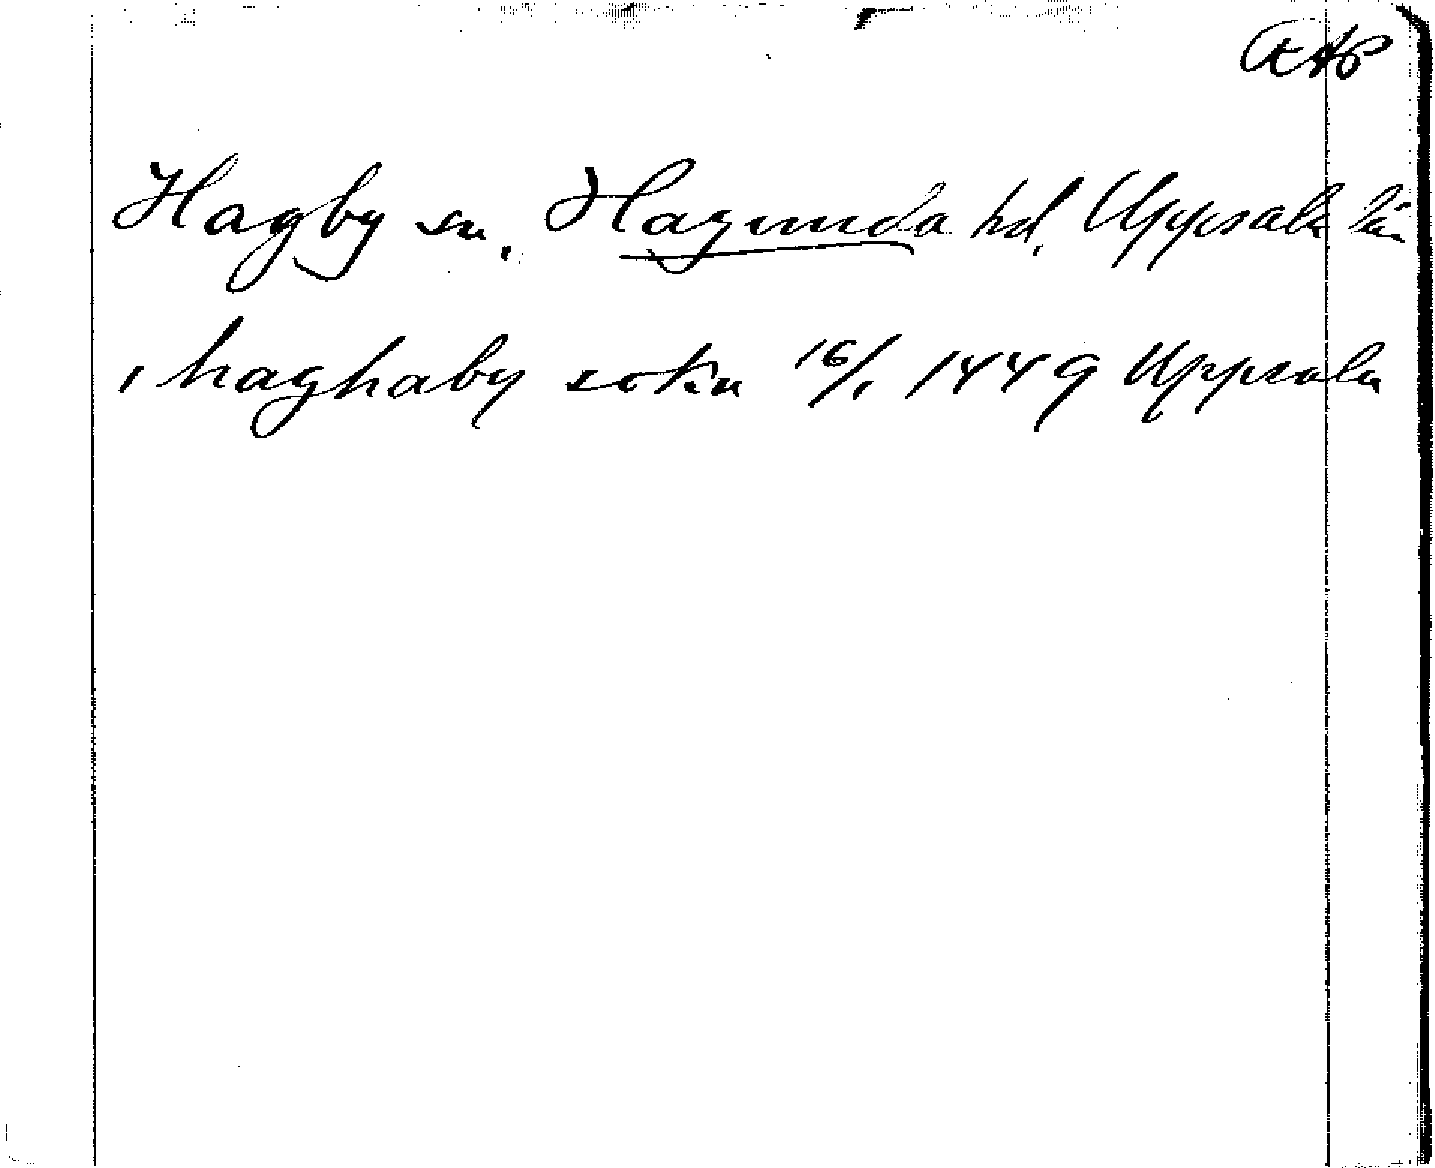 Hagby sn, Hagunda hd, Uppsala län
i haghaby sokn 16/1 1449 Uppsala